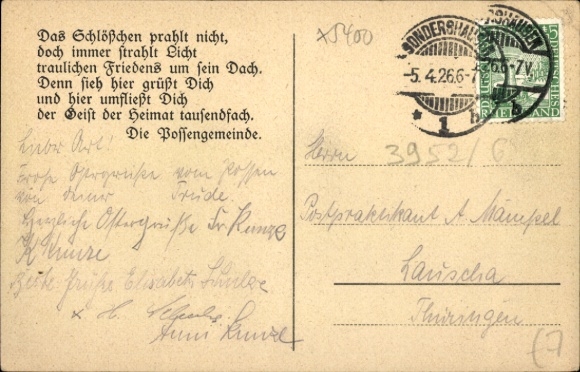 Das Schlößchen prahlt nicht,
doch immer strahlt Licht
traulichen Friedens um sein Dach.
Denn sieh hier grüßt Dich
und hier umfließt Dich
der Geist der Heimat tausendfach.
Die Possengemeinde.
Lieber Art!
Frohe Ostergrüße vom Possen
von deiner Trude.
Herzliche Ostergrüße Fr. Kunze
K Kunze
Beste Grüße Elisabeth
Anni Kunze
x5400
SONDERSHAUSEN
-5.4.26.6-7
* 1 b
SHAUSEN
26.6-7V.
b
DEUTSCHES REICH
RHEINLAND
Herrn 3952/6
Postpraktikant A. Mämpel
Lauscha
Thüringen
(7